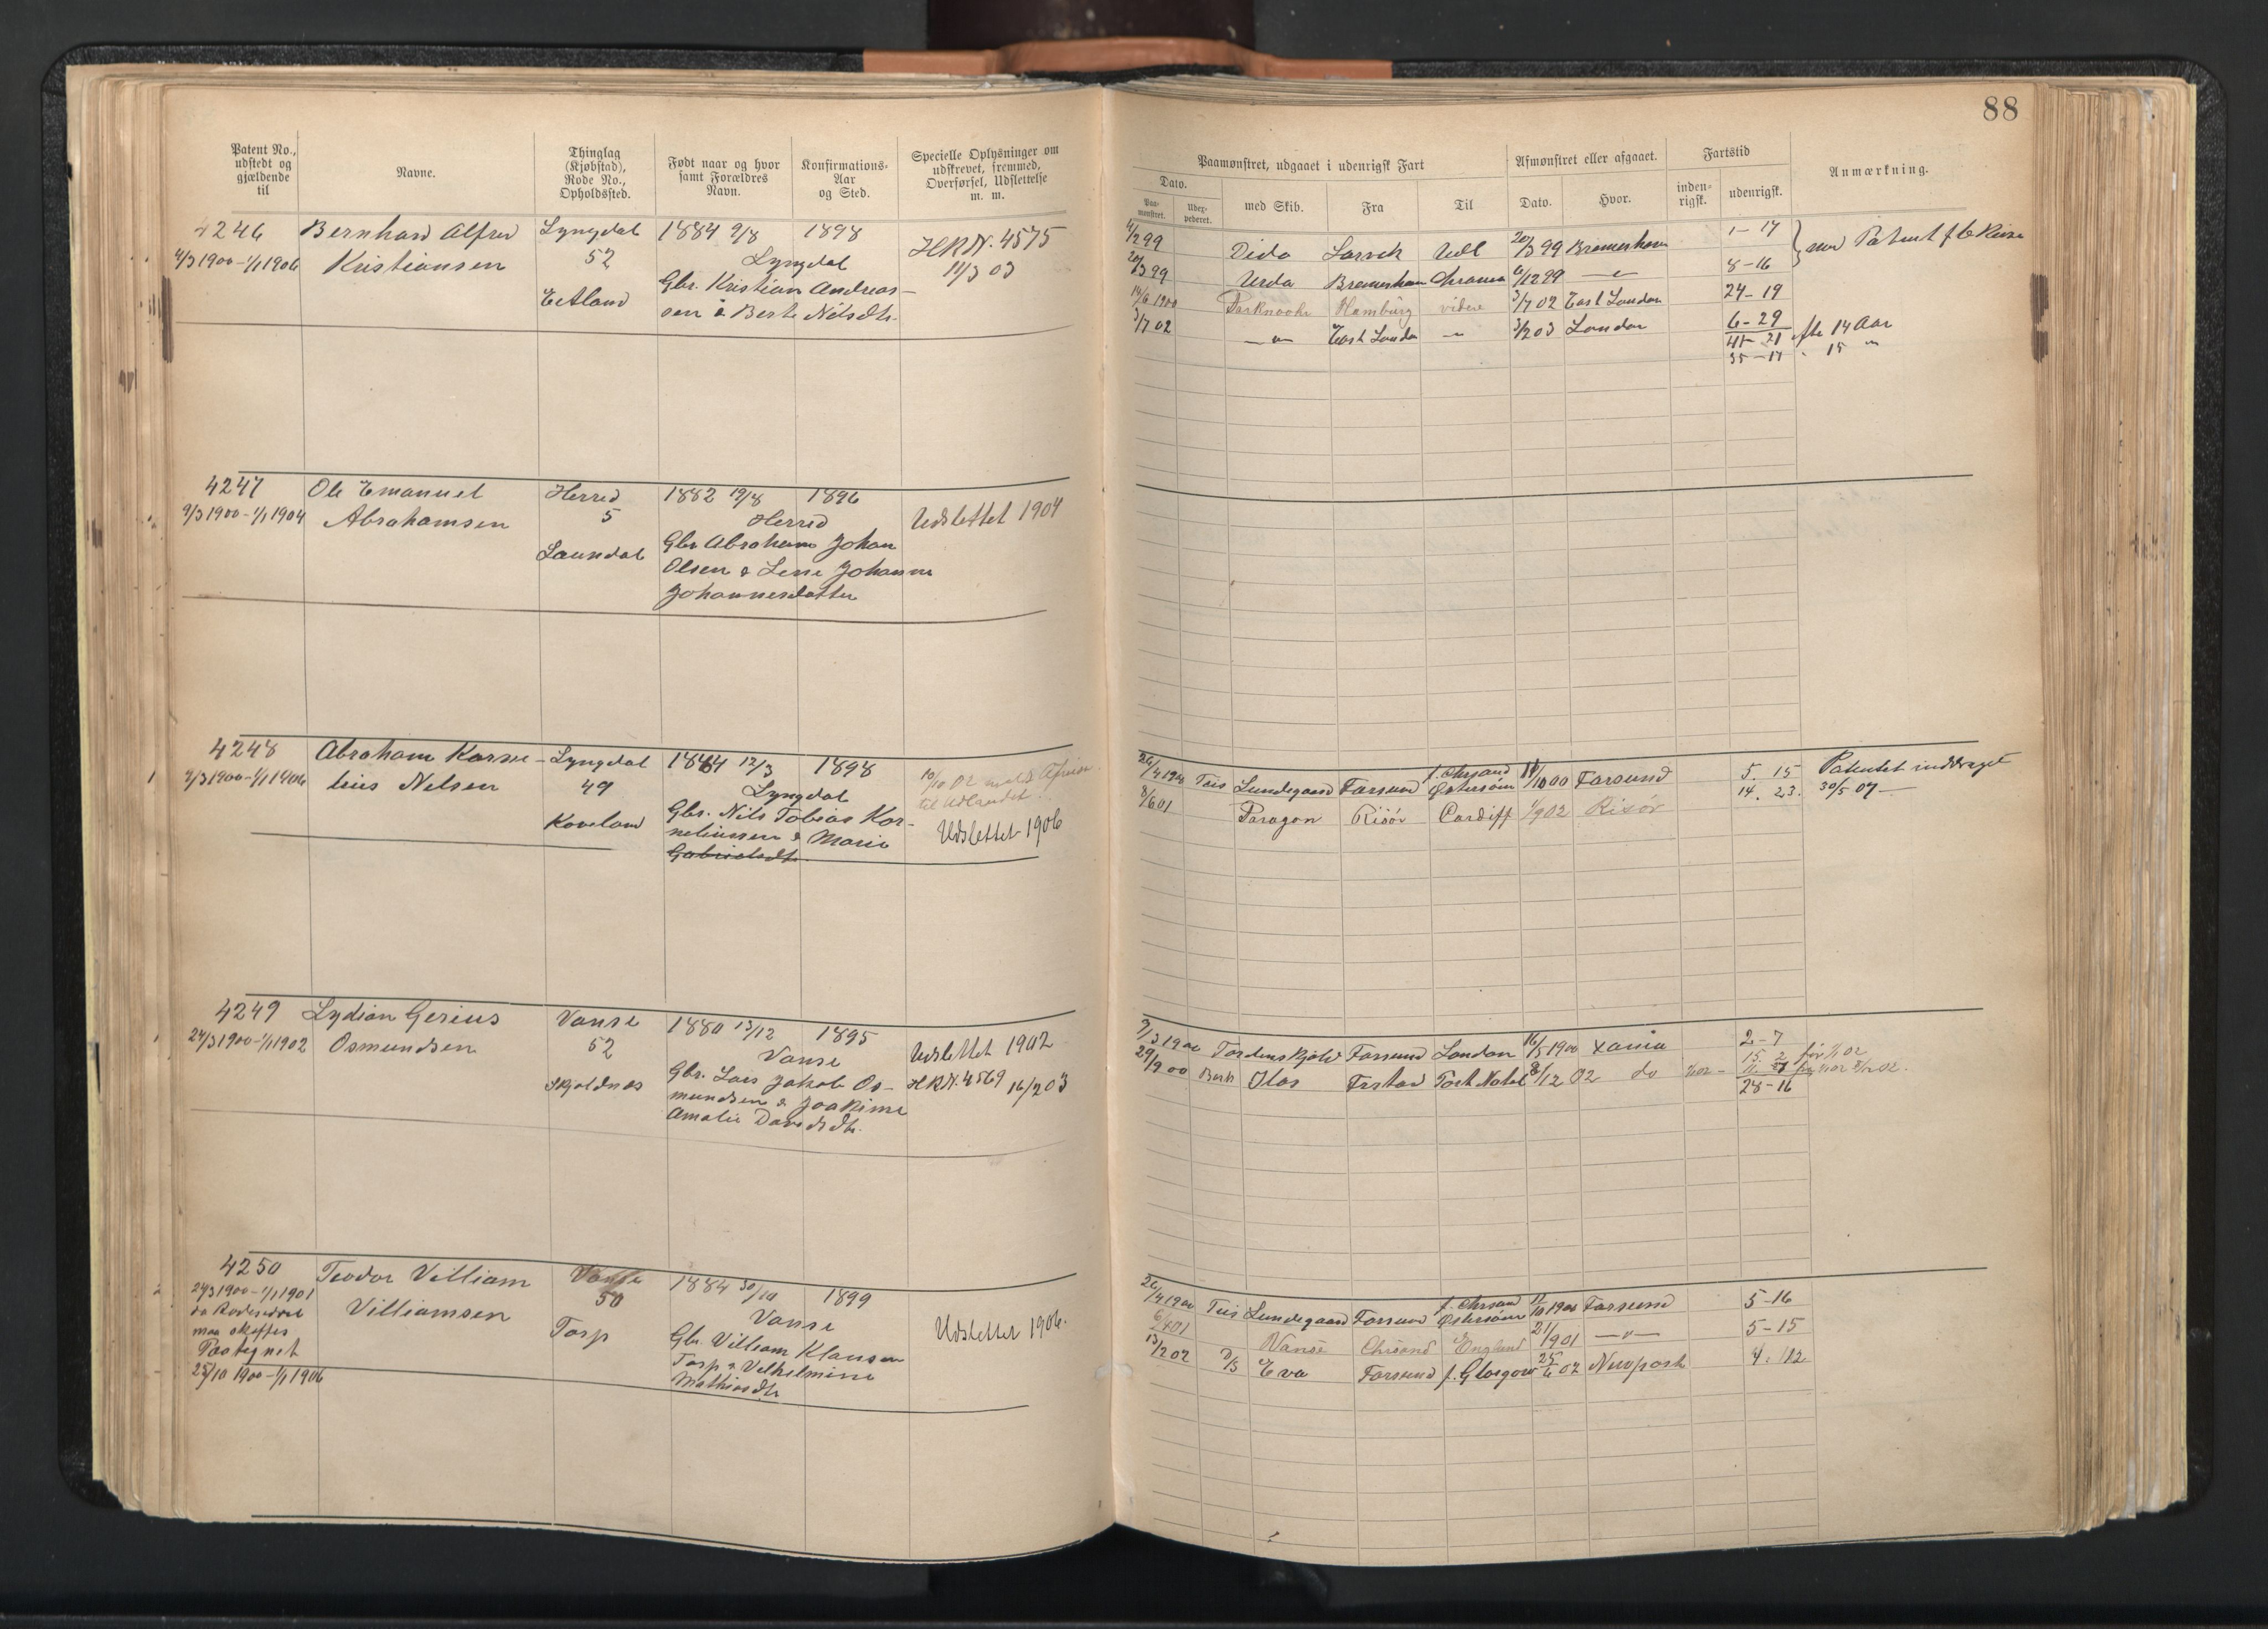 88
Patent No., udstedt og gjældende til
Navne.
Thinglag (Kjøbstad), Rode No., Opholdssted.
Født naar og hvor samt Forældres Navn.
Konfirmations-Aar og Sted.
Specielle Oplysninger om udskrevet, fremmed, Overførsel, Udslettelse m. m.
Paamønstret, udgaaet i udenrigsk Fart
Afmønstret eller afgaaet.
Fartstid
Anmærkning.
Dato.
Paa-mønstret.
Udex-pederet.
med Skib.
Fra
Til
Dato.
Hvor.
inden-rigsk.
udenrigsk.
4246 Bernhard Alfred Lyngdal 1884 9/8 1898 HRN. 4575
9/3 1900-1/1 1906 Kristiansen 52 Lyngdal 11/3 03
Etland Gbr. Kristian Andreas-
sen & Berte Nilsdtr.
4/2 99 Dida Larvik Udl 20/3 99 Bremerhavn 1-17
20/3 99 Urda Bremerhavn 6/12 99 — " — 8-16
14/6 1900 Hamburg videre 3/7 02 East London 24-19
3/7 02 — " — East London — " — 3/2 03 London 6-29
41-21 efte 14 Aar
35-17 " 15 "
4247 Ole Emanuel Herred 1882 19/8 1896
9/3 1900-1/1 1904 Abrahamsen 5 Herred Udslettet 1904
Laundal Gbr Abraham Johan
Olsen & Lene Johanne
Johannesdatter
4248 Abraham Korne- Lyngdal 1884 12/3 1898
9/3 1900-1/1 1906 lius Nelsen 49 Lyngdal til Udlandet.
Koveland Gbr. Nils Tobias Kor-
neliussen & Marie Udslettet 1906
Gabrielsdtr.
26/4 1900 Teis Lundegaard Farsund f. Chrsand Østersøen 11/10 00 Farsund 5. 15 Patentet inddraget
8/6 01 Paragon Risør Cardiff 1/9 02 Risør 14. 23. 30/5 07 —
4249 Lydian Gerius Vanse 1880 13/12 1895 Udslettet 1902
24/3 1900-1/1 1902 Osmundsen 52 Vanse HRN. 4569 16/2 03
Skjoldnes Gbr. Lars Jakob Os-
mundsen & Joakime
Amalie Davidsdtr.
7/3 1900 Tordenskjold Farsund London 16/5 1900 Xania 2-7
29/9 00 Bark Ilos Frstad Port Natal 8/12 02 do
28-16
4250 Teodor Villiam Vanse 1884 30/10 1899
24/3 1900-1/1 1901 Villiamsen 50 Vanse
maa skiftes Torp Gbr. Villiam Klausen Udslettet 1906.
Paategnet Torp & Velhelmine
25/10 1900-1/1 1906 Mathiasdtr
26/4 1900 Teis Lundegaard Farsund f. Chrsand Østersøen 11/10 1900 Farsund 5-16
6/4 01 Vanse Chrsand England 21/9 01 — " — 5-15
13/2 02 D/S Eva Farsund f. Glasgow 25/6 02 Newport 4. 12